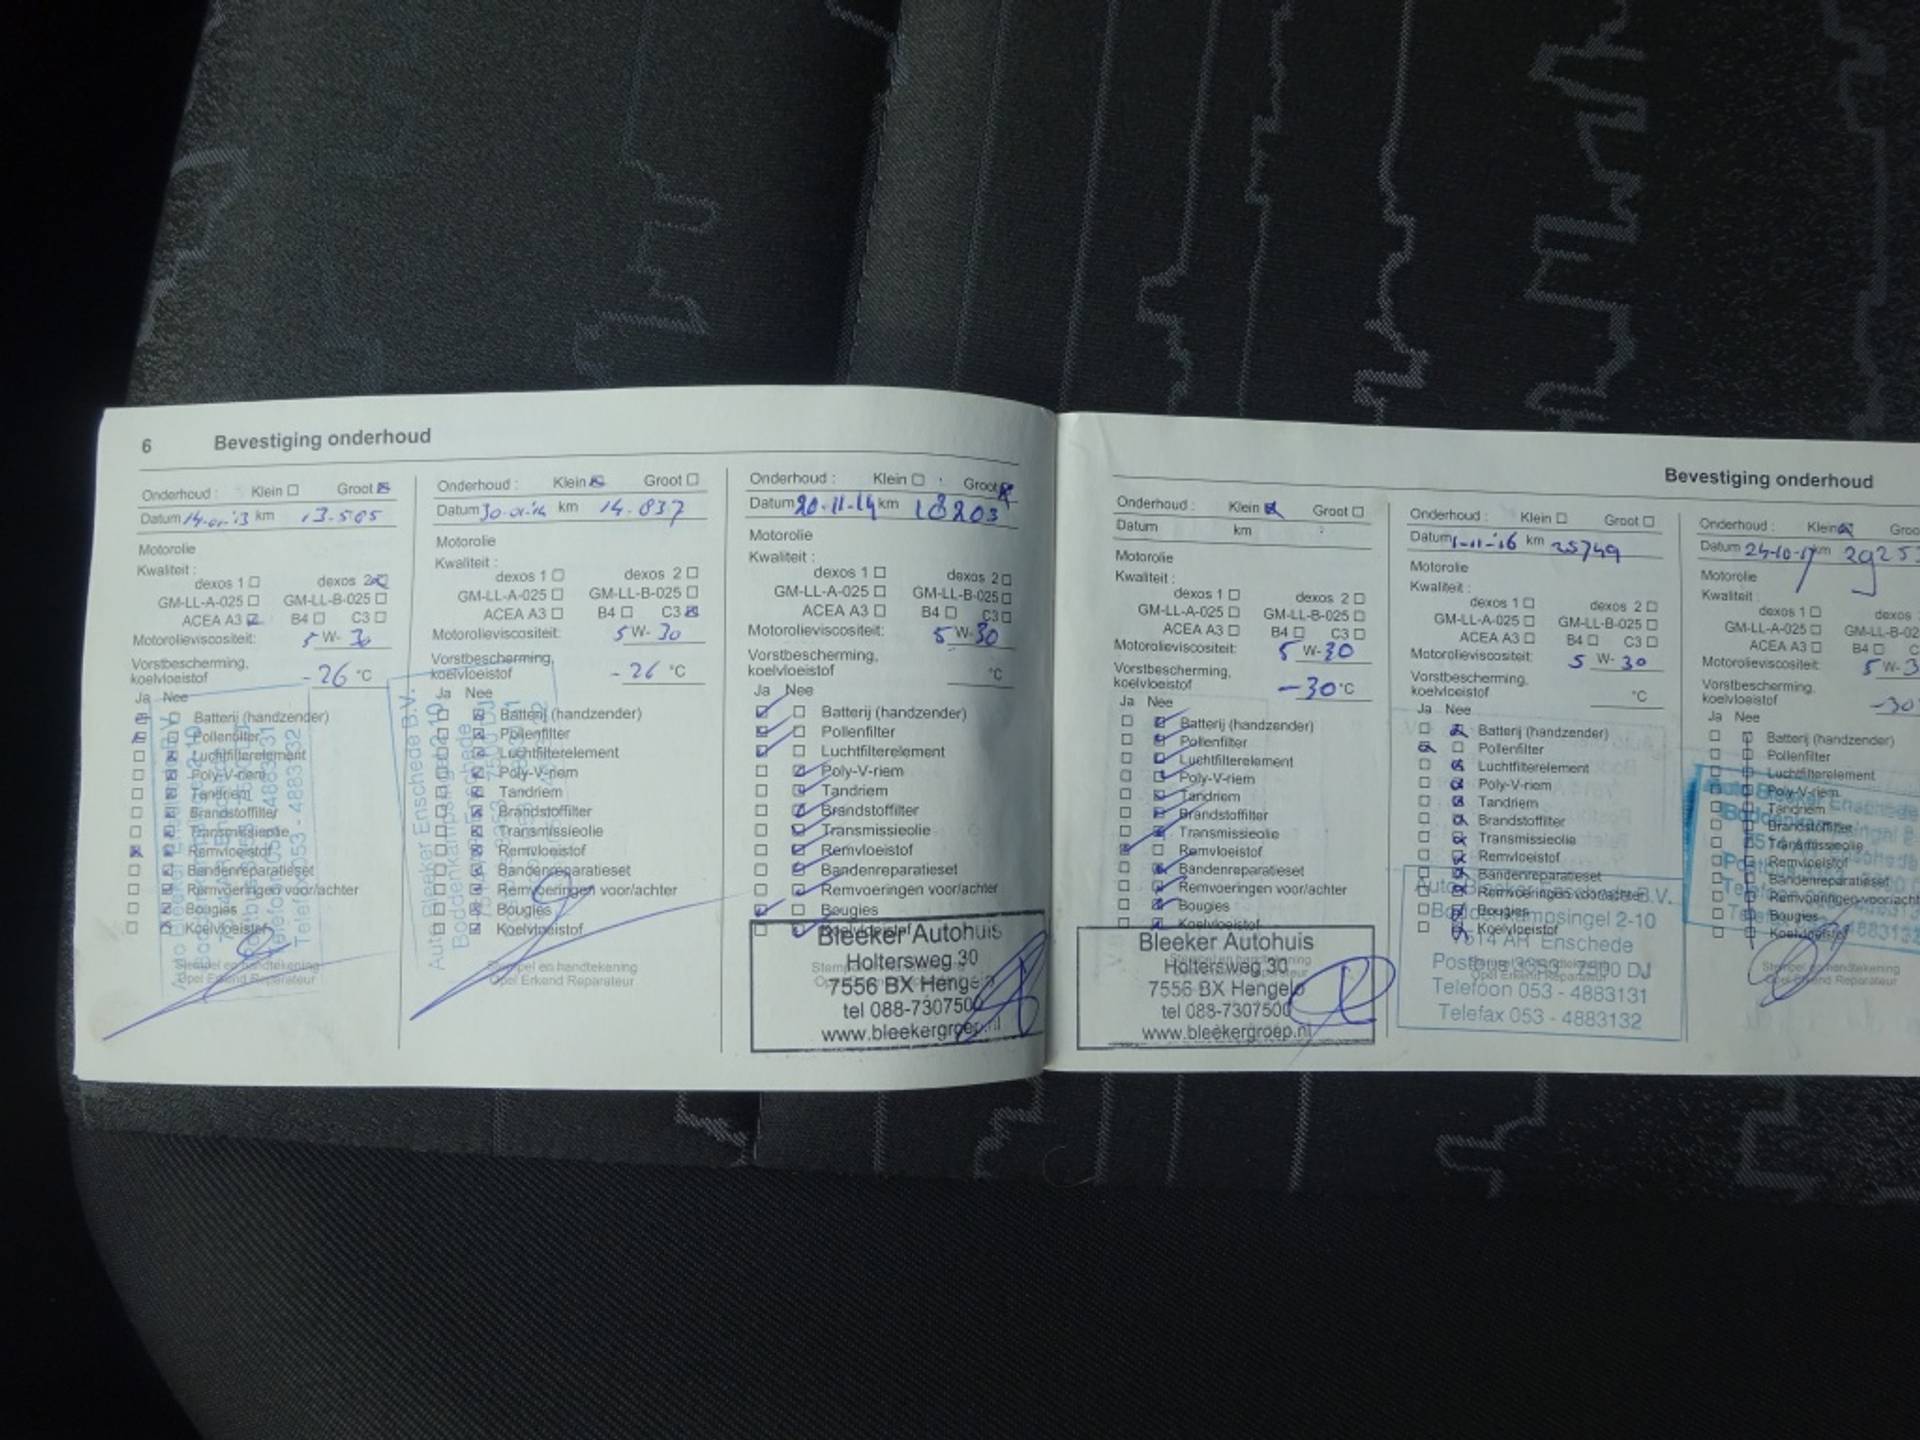 6 Bevestiging onderhoud
Onderhoud : Klein Groot
Datum 14-01-'13 km 13.505
Motorolie
Kwaliteit :
dexos 1 dexos 2
GM-LL-A-025 GM-LL-B-025
ACEA A3 B4 C3
Motorolieviscositeit: 5 W- 30
Vorstbescherming,
koelvloeistof -26 °C
Ja Nee
Batterij (handzender)
Pollenfilter
Luchtfilterelement
Poly-V-riem
Tandriem
Brandstoffilter
Transmissieolie
Remvloeistof
Bandenreparatieset
Remvoeringen voor/achter
Bougies
Koelvloeistof
Stempel en handtekening
Opel Erkend Reparateur
Onderhoud : Klein Groot
Datum 30-01-'14 km 14.837
Motorolie
Kwaliteit :
dexos 1 dexos 2
GM-LL-A-025 GM-LL-B-025
ACEA A3 B4 C3
Motorolieviscositeit: 5 W- 30
Vorstbescherming,
koelvloeistof -26 °C
Ja Nee
Batterij (handzender)
Pollenfilter
Luchtfilterelement
Poly-V-riem
Tandriem
Brandstoffilter
Transmissieolie
Remvloeistof
Bandenreparatieset
Remvoeringen voor/achter
Bougies
Koelvloeistof
Auto Bleeker Enschede B.V.
Boddenkampsingel 2-10
Stempel en handtekening
Opel Erkend Reparateur
Onderhoud : Klein Groot
Datum 20-11-14 km 18203
Motorolie
Kwaliteit :
dexos 1 dexos 2
GM-LL-A-025 GM-LL-B-025
ACEA A3 B4 C3
Motorolieviscositeit: 5 W-30
Vorstbescherming,
koelvloeistof °C
Ja Nee
Batterij (handzender)
Pollenfilter
Luchtfilterelement
Poly-V-riem
Tandriem
Brandstoffilter
Transmissieolie
Remvloeistof
Bandenreparatieset
Remvoeringen voor/achter
Bougies
Koelvloeistof
Bleeker Autohuis
Holtersweg 30
7556 BX Hengelo
tel 088-7307500
www.bleekergroep.nl
Bevestiging onderhoud
Onderhoud : Klein Groot
Datum km
Motorolie
Kwaliteit :
dexos 1 dexos 2
GM-LL-A-025 GM-LL-B-025
ACEA A3 B4 C3
Motorolieviscositeit: 5 W-30
Vorstbescherming,
koelvloeistof -30 °C
Ja Nee
Batterij (handzender)
Pollenfilter
Luchtfilterelement
Poly-V-riem
Tandriem
Brandstoffilter
Transmissieolie
Remvloeistof
Bandenreparatieset
Remvoeringen voor/achter
Bougies
Koelvloeistof
Bleeker Autohuis
Holtersweg 30
7556 BX Hengelo
tel 088-7307500
www.bleekergroep.nl
Onderhoud : Klein Groot
Datum 1-11-'16 km 25749
Motorolie
Kwaliteit :
dexos 1 dexos 2
GM-LL-A-025 GM-LL-B-025
ACEA A3 B4 C3
Motorolieviscositeit: 5 W- 30
Vorstbescherming,
koelvloeistof °C
Ja Nee
Batterij (handzender)
Pollenfilter
Luchtfilterelement
Poly-V-riem
Tandriem
Brandstoffilter
Transmissieolie
Remvloeistof
Bandenreparatieset
Remvoeringen voor/achter
Bougies
Koelvloeistof
Auto Bleeker Enschede B.V.
Boddenkampsingel 2-10
7514 AR Enschede
Postbus 3353 - 7500 DJ
Telefoon 053 - 4883131
Telefax 053 - 4883132
Onderhoud : Klein Groo
Datum 24-10-17 km 29253
Motorolie
Kwaliteit :
dexos 1 dexos
GM-LL-A-025 GM-LL-B-02
ACEA A3 B4 C
Motorolieviscositeit: 5 W-3
Vorstbescherming,
koelvloeistof -30
Ja Nee
Batterij (handzender)
Pollenfilter
Luchtfilterelement
Poly-V-riem
Tandriem
Brandstoffilter
Transmissieolie
Remvloeistof
Bandenreparatieset
Remvoeringen voor/acht
Bougies
Koelvloeistof
Stempel en handtekening
Opel Erkend Reparateur